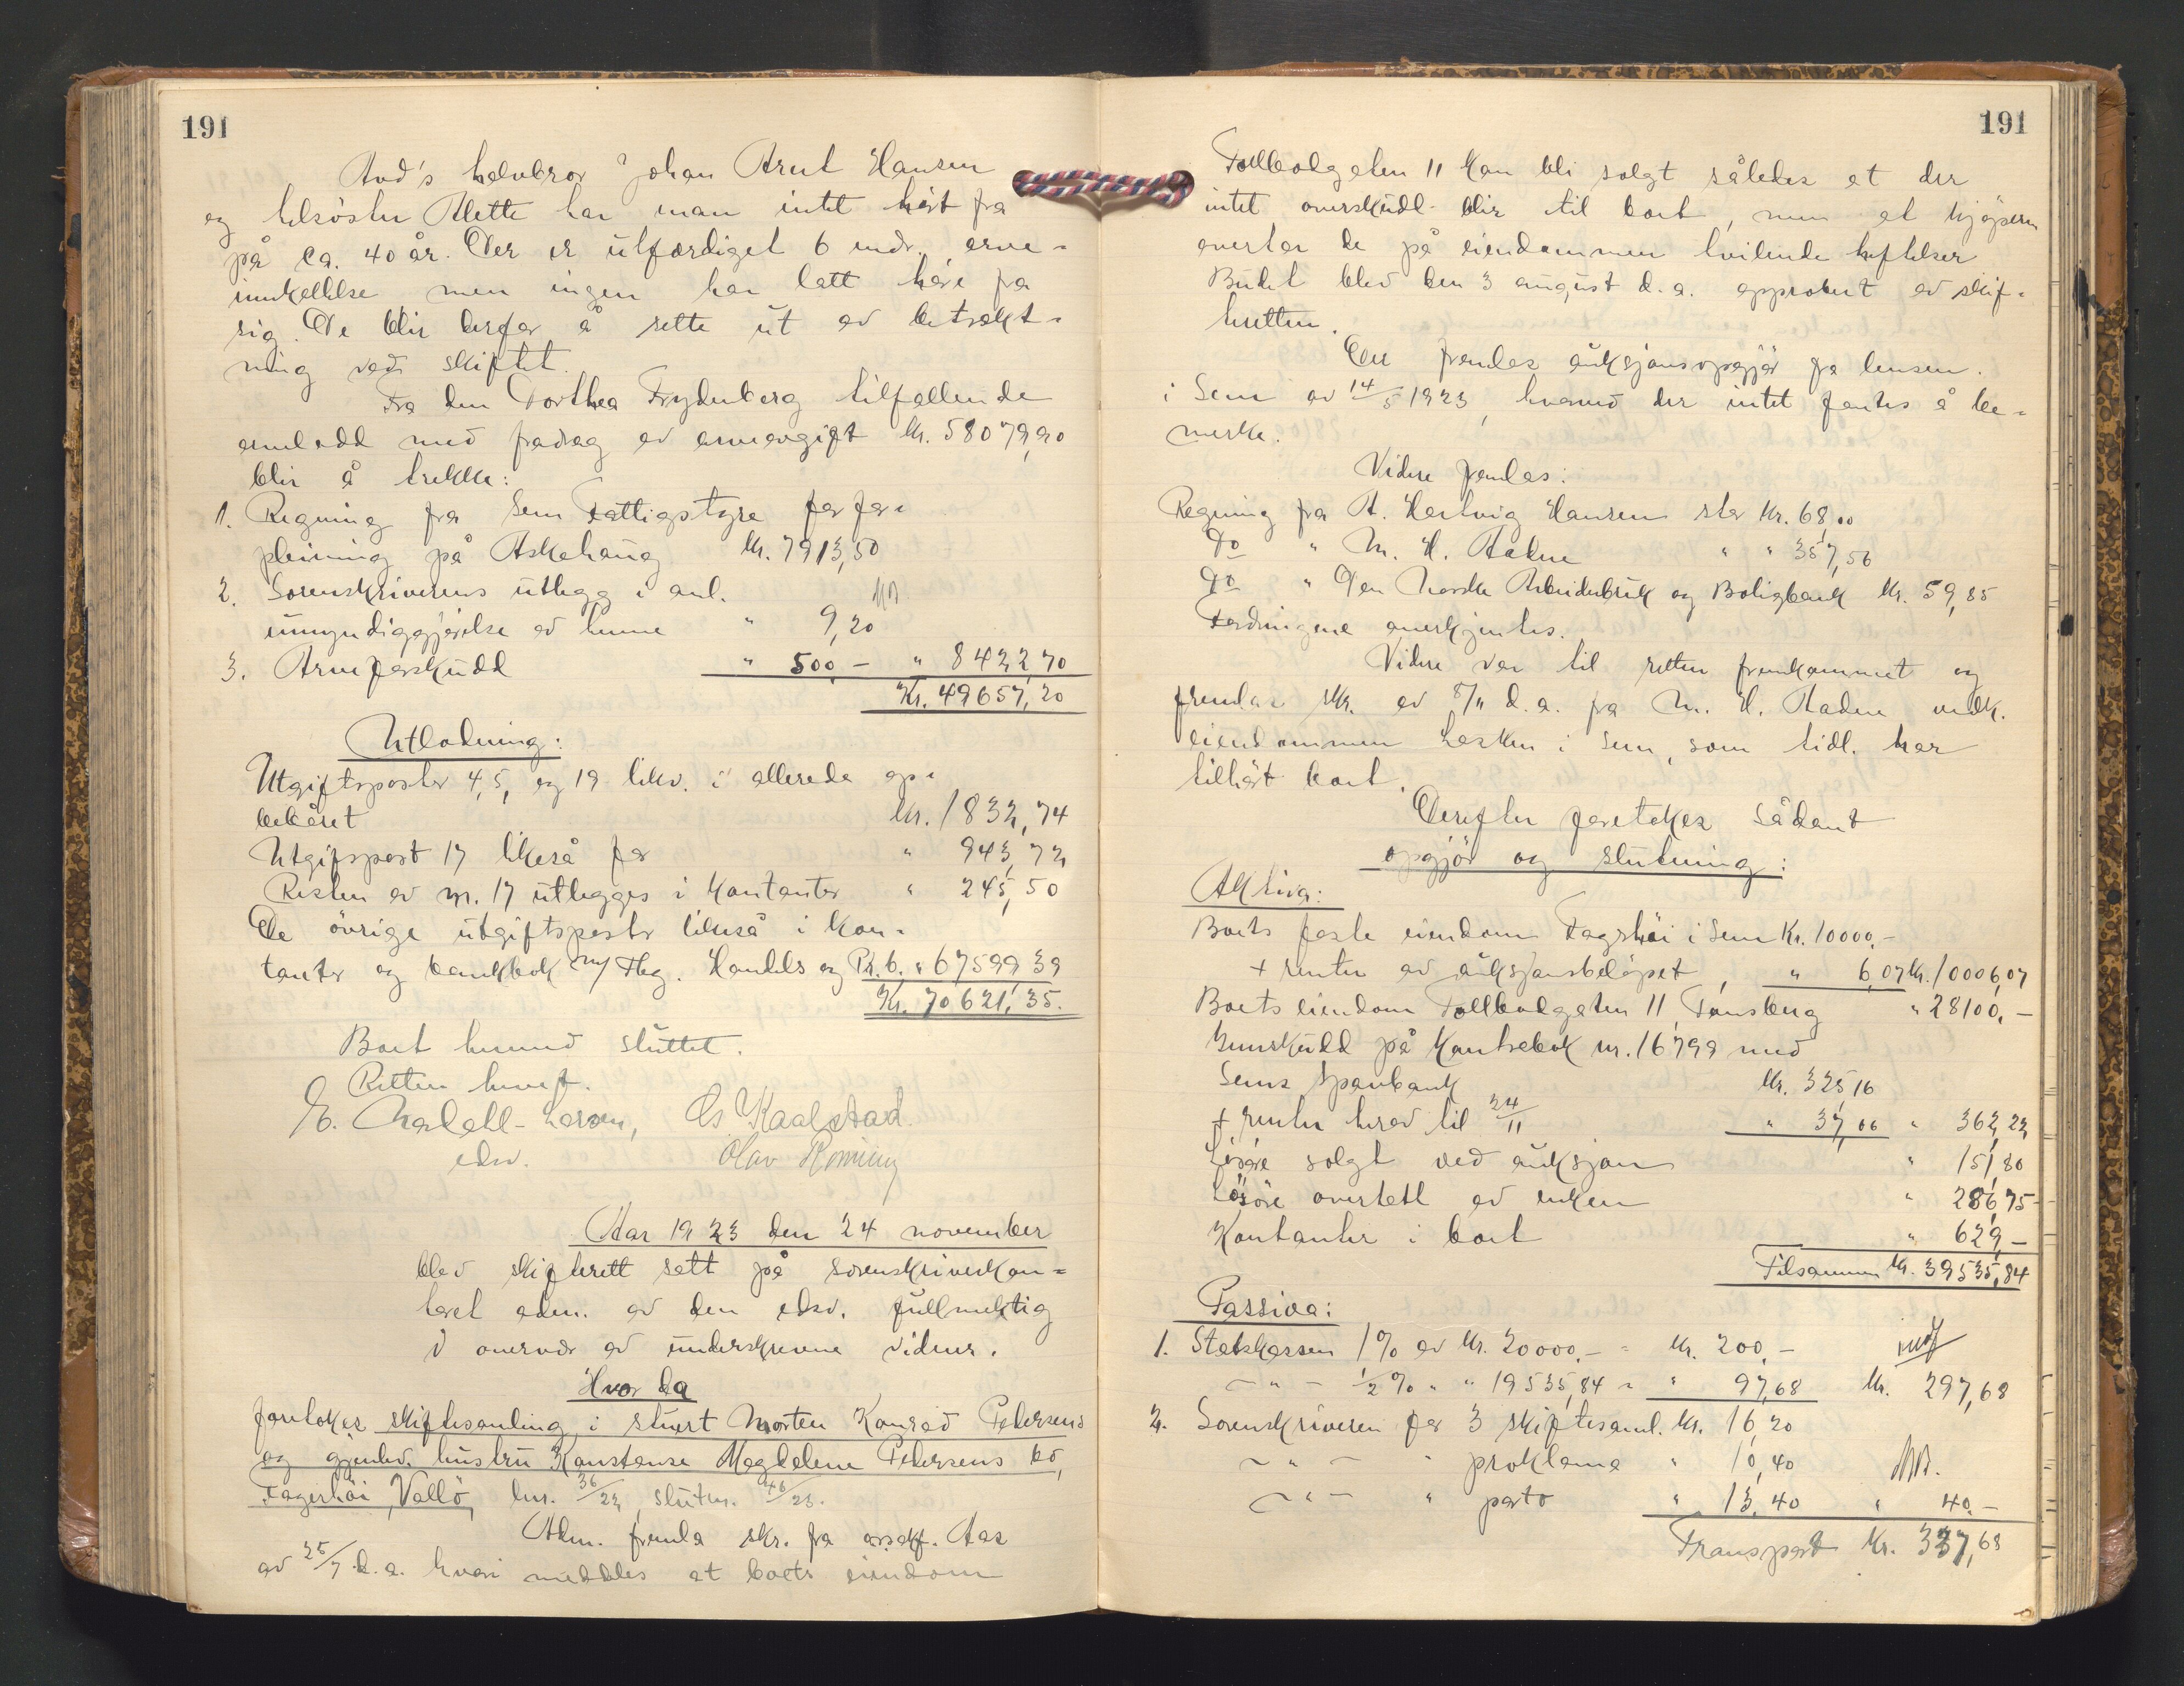 191
Avd's halvbror Johan Arnt Hansen
og helsöster Alette har man intet hört fra
på ca. 40 år. Der er utfærdiget 6 mdr. arve-
innkallelse men ingen har latt höre fra
sig. De blir derfor å sette ut av betrakt-
ning ved skiftet.
Fra den Dorthea Frydenberg tilfallende
arvelodd med fradrag av arveavgift kr. 58079,90
blir å trekke:
1. Regning fra Sem Fattigstyre for for-
pleining på Askehaug kr. 7913,50
2. Sorenskriverens utlegg i anl.
umyndiggjörelse av henne " 9,20
3. Arveforskudd " 500,- " 8422,70
Kr. 49657,20
Utlodning:
Utgiftsposter 4, 5, og 19 likv. i allerede op-
bebåret kr. 1832,74
Utgifspost 17 likeså for " 943,72
Resten av nr. 17 utlegges i kontanter " 245,50
De övrige utgiftsposter likeså i kon-
tanter og bankbok m/ Tbg. Handels og Pr. b. " 67599,39
Kr. 70621,35.
Boet hermed sluttet.
Retten hevet.
Larsen, Kaalstad.
edsv. Olav
Aar 1923 den 24 november
blev skifterett satt på sorenskriverkon-
toret adm. av den edsv. fullmektig
i overvær av underskrevne vidner.
Hvor da
foretokes skiftesamling i stuert Morten Konrad Pedersens
og gjenlev. hustru Konstanse Magdalene Pedersens bo,
Fagerhöi, Vallö, lnr. 36/22, slutnr. 46/23.
Adm. fremla skr. fra o.r.sakf. Aas
av 25/7 d.a. hvori meddeles at boets eiendom
191
Tollbodgaten 11 kan bli solgt således at der
intet overskudd blir til boet, men at kjöperen
overtar de på eiendommen hvilende heftelser.
Budet blev den 3 august d.a. approbert av skif-
teretten.
Der fremlas auksjonsopgjör fra lensm.
i Sem av 14/5 1923, hvorved der intet fantes å be-
merke.
Videre fremlas:
Regning fra A. Hertvig Hansen stor kr. 68,00
Do " M. H. Aadne " " 357,56
Do " Den Norske Arbeiderbruk og Boligbank kr. 59,85
Fordringene anerkjentes.
Videre var til retten fremkommet og
fremlas skr. av 8/11 d.a. fra M. H. Aadne vedk.
eiendommen Lökken i Sem, som tidl. har
tilhört boet.
Derefter foretokes sådant
opgjör og slutning:
Aktiva:
Boets faste eiendom Fagerhöi i Sem Kr. 10000,-
+ renter av auksjonsbelöpet, " 6,07 Kr. 10006,07
Boets eiendom Tollbodgaten 11, Tönsberg " 28100,-
Innskudd på kontrabok nr. 16799 med
Sems Sparebank kr. 325,16
+ renter herav til 24/11 " 37,06 " 362,22
Lösöre solgt ved auksjon " 151,80
Lösöre overtatt av enken " 286,75
Kontanter i boet " 629,-
Tilsammen kr. 39535,84
Passiva:
1. Statskassen 1% av kr. 20000,- = kr. 200,-
- " - 1/2 % " " 19535,84 = " 97,68 kr. 297,68
2. Sorenskriveren for 3 skiftesaml. kr. 16,20
- " - " proklama " 10,40
- " - " porto " 13,40 " 40,-
Transport kr. 337,68